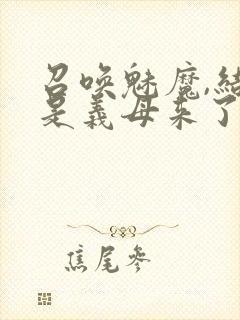 召唤魅魔,结
是义母来了
焦尾参